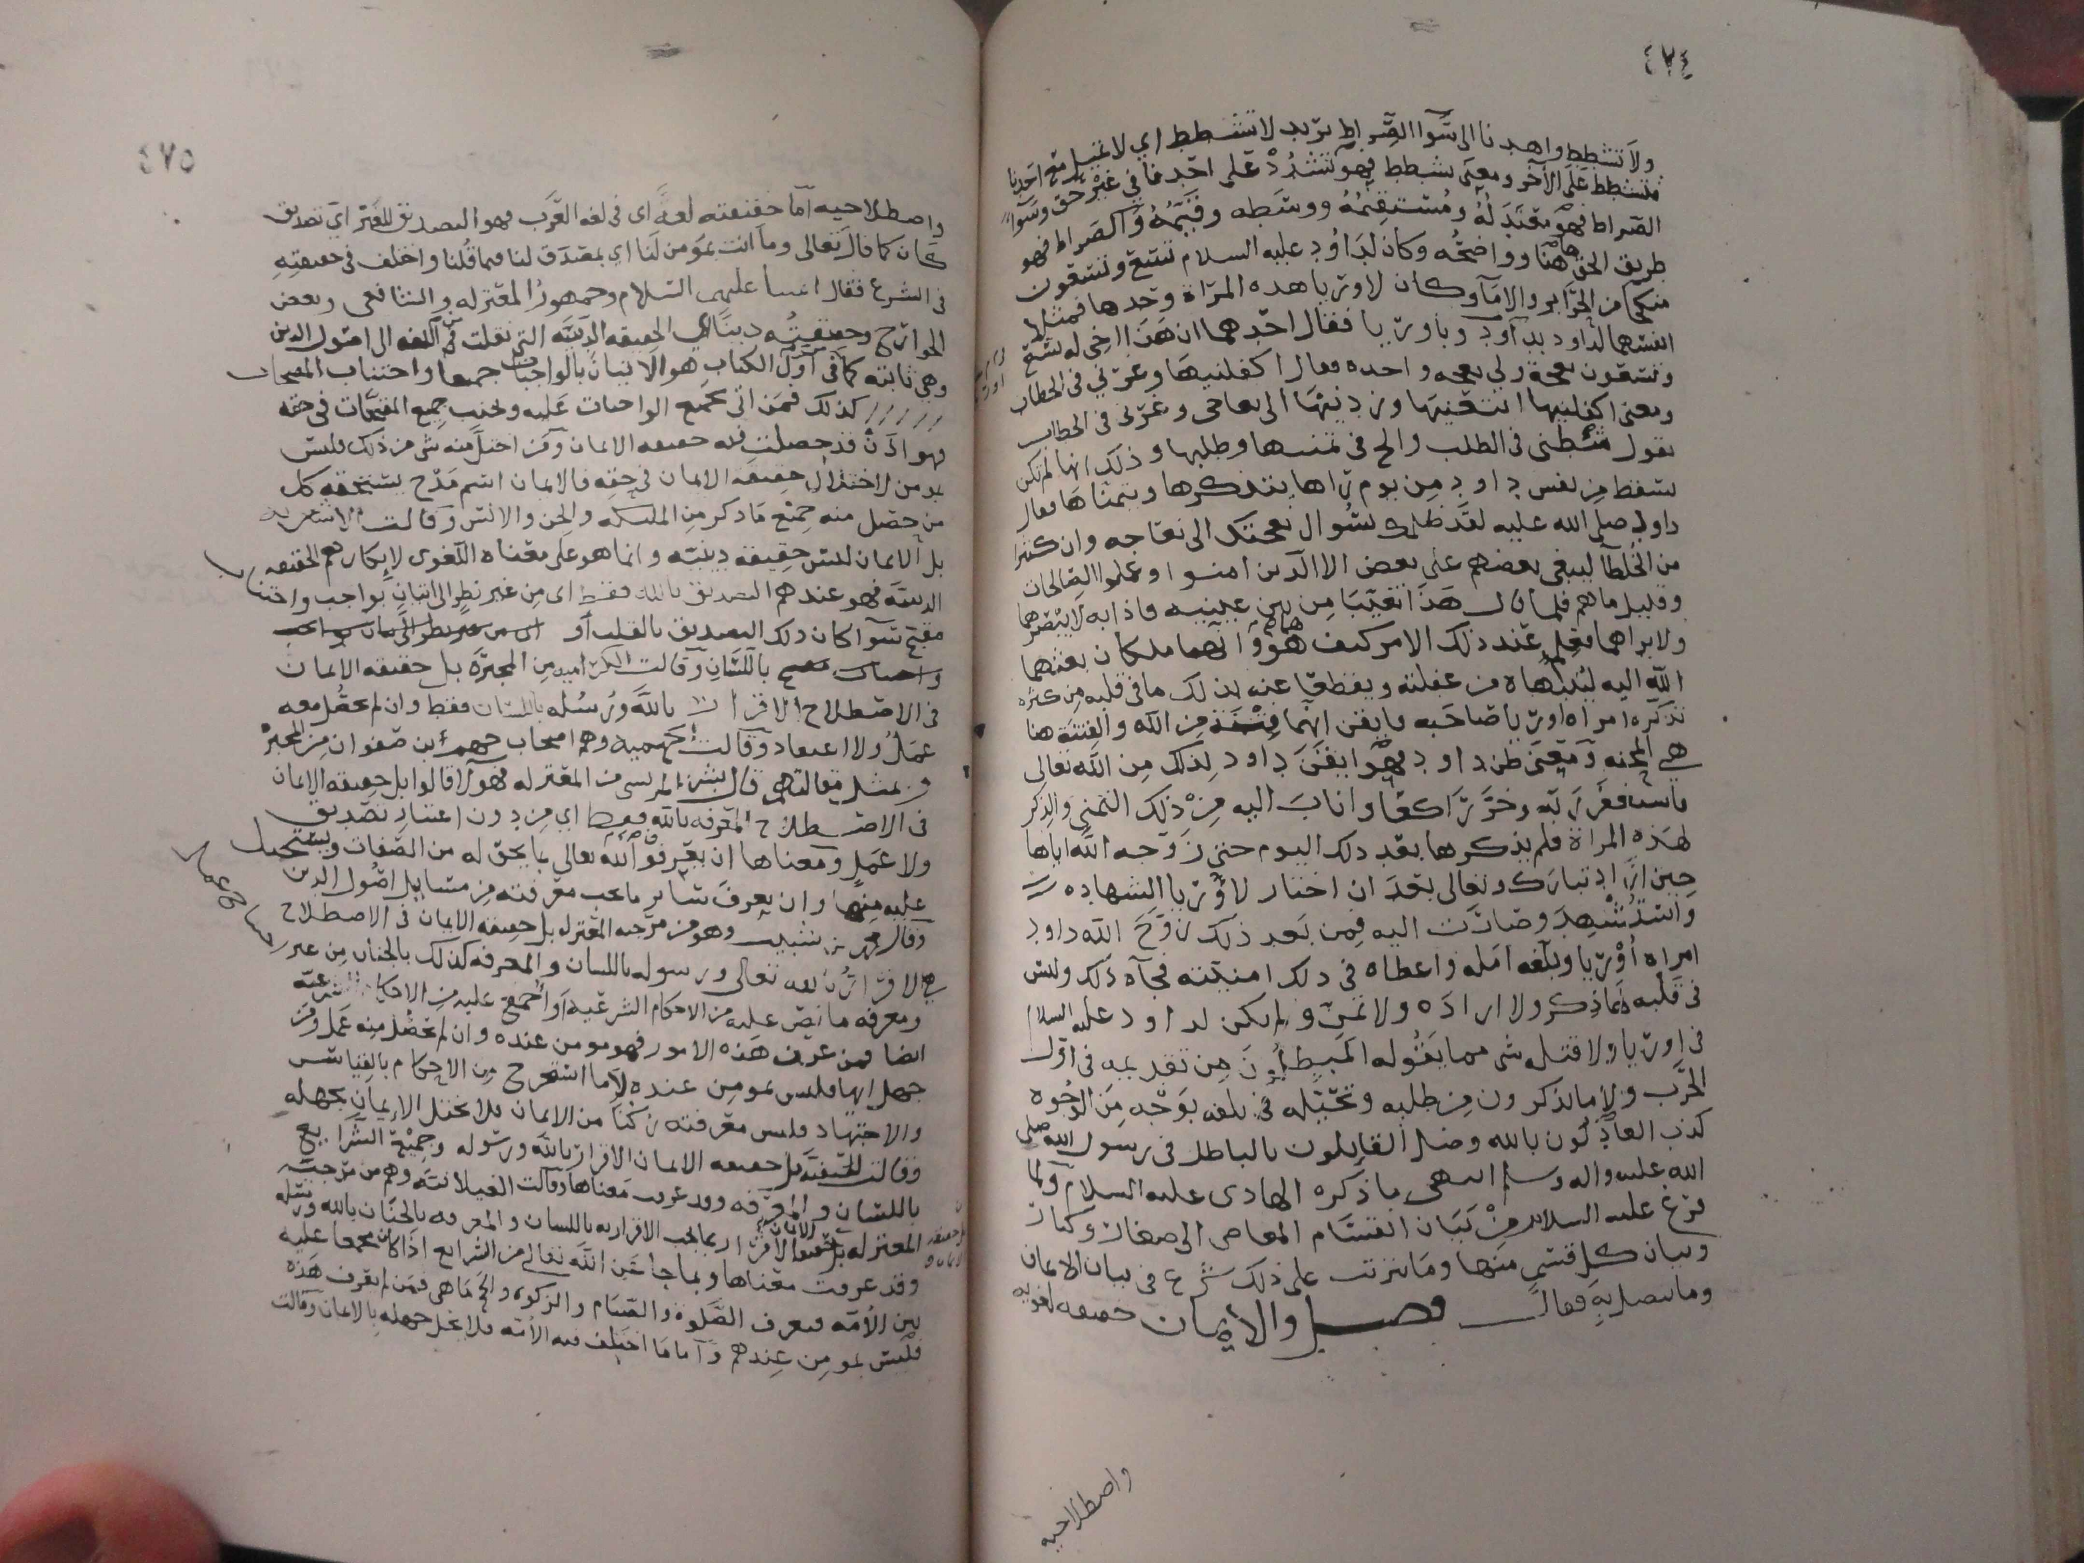 ٤٧٤
ولا تشطط واهدنا الى سوآ الصراط يريد لا تشطط اي لا تميل مع احدنا
فتشطط على الآخر ومعنى تشطط فهو تشدد على احدنا في غير حق وسوآ
الصراط فهو معتدله ومستقيمه ووسطه وقيمه والصراط فهو
طريق الحق هاهنا وواضحه وكان لداوود عليه السلام تسع وتسعون
من الحراير والامآ وكان لاوريا هذه المرأة وحدها فمثلا
انفسهما لداود بداوود وباوريا فقال احدهما ان هذا اخي له تسع
وتسعون نعجة ولي نعجه واحده فقال اكفلنيها وعزني في الخطاب
ومعنى اكفلنيها اتبعنيها وزدنيها الى نعاجي وعزني في الخطاب
يقول شطني في الطلب والح في تمنيها وطلبها وذلك انها لم تكن
تسقط من نفس داود من يوم رآها يتذكرها ويتمناها فقال
داود صلى الله عليه لقد ظلمك بسؤال نعجتك الى نعاجه وان كثيرا
من الخلطآ ليبغي بعضهم على بعض الا الذين امنوا وعملوا الصالحات
وقليل ما هم فلما قال هذا تغيبا من بين عينيه فاذا به لا يبصرهما
ولا يراهما فعلم عند ذلك الامر كيف هو وانهما ملكان بعثهما
الله اليه لينبهاه من غفلته ويقطعا عنه بذلك ما في قلبه من كثره
تذكره امراه اوريا صاحبه فايقن انها فتنة من الله والفتنة هنا
هي المحنه ومعنى ظن داود فهو ايقن داود بذلك من الله تعالى
فاستغفر ربه وخر راكعا واناب اليه من ذلك التمني والذكر
لهذه المرأة فلم يذكرها بعد ذلك اليوم حتى زوجه الله اياها
حين اراد تبارك وتعالى بعد ان اختار لاوريا الشهاده
واستشهد وصارت اليه فمن بعد ذلك زوج الله داود
امراه اوريا وبلغه امله واعطاه في ذلك امنيته فجآه ذلك وليس
في قلبه لها ذكر ولا اراده ولا تمن ولم يكن لداود عليه السلام
في اوريا ولا قتله شي مما يقوله المبطلون من تقديمه في اول
الحرب ولا ما يذكرون من طلبه وتحيله في تلفه بوجه من الوجوه
كذب العاذلون بالله وضل القايلون بالباطل في رسول الله صلى
الله عليه واله وسلم انتهى ما ذكره الهادي عليه السلام ولما
فرغ عليه السلام من بيان انقسام المعاصي الى صغائر وكبائر
وبيان كل قسم منها وما يترتب على ذلك شرع في بيان الايمان
وما يتصل به فقال فصل والايمان حقيقه لغويه
واصطلاحيه
٤٧٥
واصطلاحيه اما حقيقته لغة اي في لغه العرب فهو التصديق للغير اي تصديق
كان كما قال تعالى وما انت بمؤمن لنا اي بمصدق لنا فيما قلنا واختلف في حقيقته
في الشرع فقال ائمتنا عليهم السلام وجمهور المعتزله والشافعي وبعض
الخوارج وحقيقته دينا اي الحقيقه الدينيه التي نقلت من اللغه الى اصول الدين
وهي ثابته كما في اول الكتاب هو الاتيان بالواجبات جميعا واجتناب المقبحات
كذلك فمن اتى بجميع الواجبات عليه وتجنب جميع المقبحات في حقه
فهو اذن قد حصلت فيه حقيقه الايمان ومن اختل منه شي من ذلك فليس
بمومن لاختلال حقيقه الايمان في حقه فالايمان اسم مدح يستحقه كل
من حصل منه جميع ما ذكر من الملئكه والجن والانس وقالت الاشعريه
بل الايمان ليس حقيقة دينيه وانما هو على معناه اللغوي لانكارهم الحقيقه
الدينيه فهو عندهم التصديق بالله فقط اي من غير نظر الى اتيان بواجب واجتناب
مقبح سوآ كان ذلك التصديق بالقلب أو اي من غير نظر الى اتيان بواجب
واجتناب مقبح باللسان وقالت الكراميه من المجبره بل حقيقه الايمان
في الاصطلاح الاقرار بالله ورسله باللسان فقط وان لم يحصل معه
عمل ولا اعتقاد وقالت الجهميه وهم اصحاب جهم بن صفوان من المجبره
وبمثل مقالتهم قال بشر المريسي من المعتزله فهولا قالوا بل حقيقه الايمان
في الاصطلاح المعرفه بالله فقط اي من دون اعتبار تصديق
ولا عمل ومعناها ان يعرفوا الله تعالى بما يحق له من الصفات ويستحيل
عليه منها وان يعرف سآير ما يجب معرفته من مسايل اصول الدين
وقال محمد بن شبيب وهو من مرجيه المعتزله بل حقيقه الايمان في الاصطلاح
هي الاقرار بالله تعالى ورسوله باللسان والمعرفه كذلك بالجنان من غير
ومعرفه ما نص عليه من الاحكام الشرعيه او اجمع عليه من الاحكام الشرعيه
ايضا فمن عرف هذه الامور فهو مومن عنده وان لم يحصل منه عمل ومن
جهل ايها فليس بمومن عنده لا ما استخرج من الاحكام بالقياس
والاجتهاد فليس معرفته ركنا من الايمان فلا يختل الايمان بجهله
وقالت الحنفيه بل حقيقه الايمان الاقرار بالله ورسوله وجميع الشرايع
باللسان والمعرفه وقد عرفت معناها وقالت الغيلانيه وهم من مرجيه
المعتزله بل حقيقه الايمان الاقرار بما يجب الاقرار به باللسان والمعرفه بالجنان بالله ورسله
وقد عرفت معناها وبما جا عن الله تعالى من الشرايع اذا كان مجمعا عليه
بين الأمه فيعرف الصلوه والصيام والزكوه والحج ما هي فمن لم يعرف هذه
فليس بمومن عندهم واما ما اختلف فيه الأمه فلا يخل جهله بالايمان وقالت